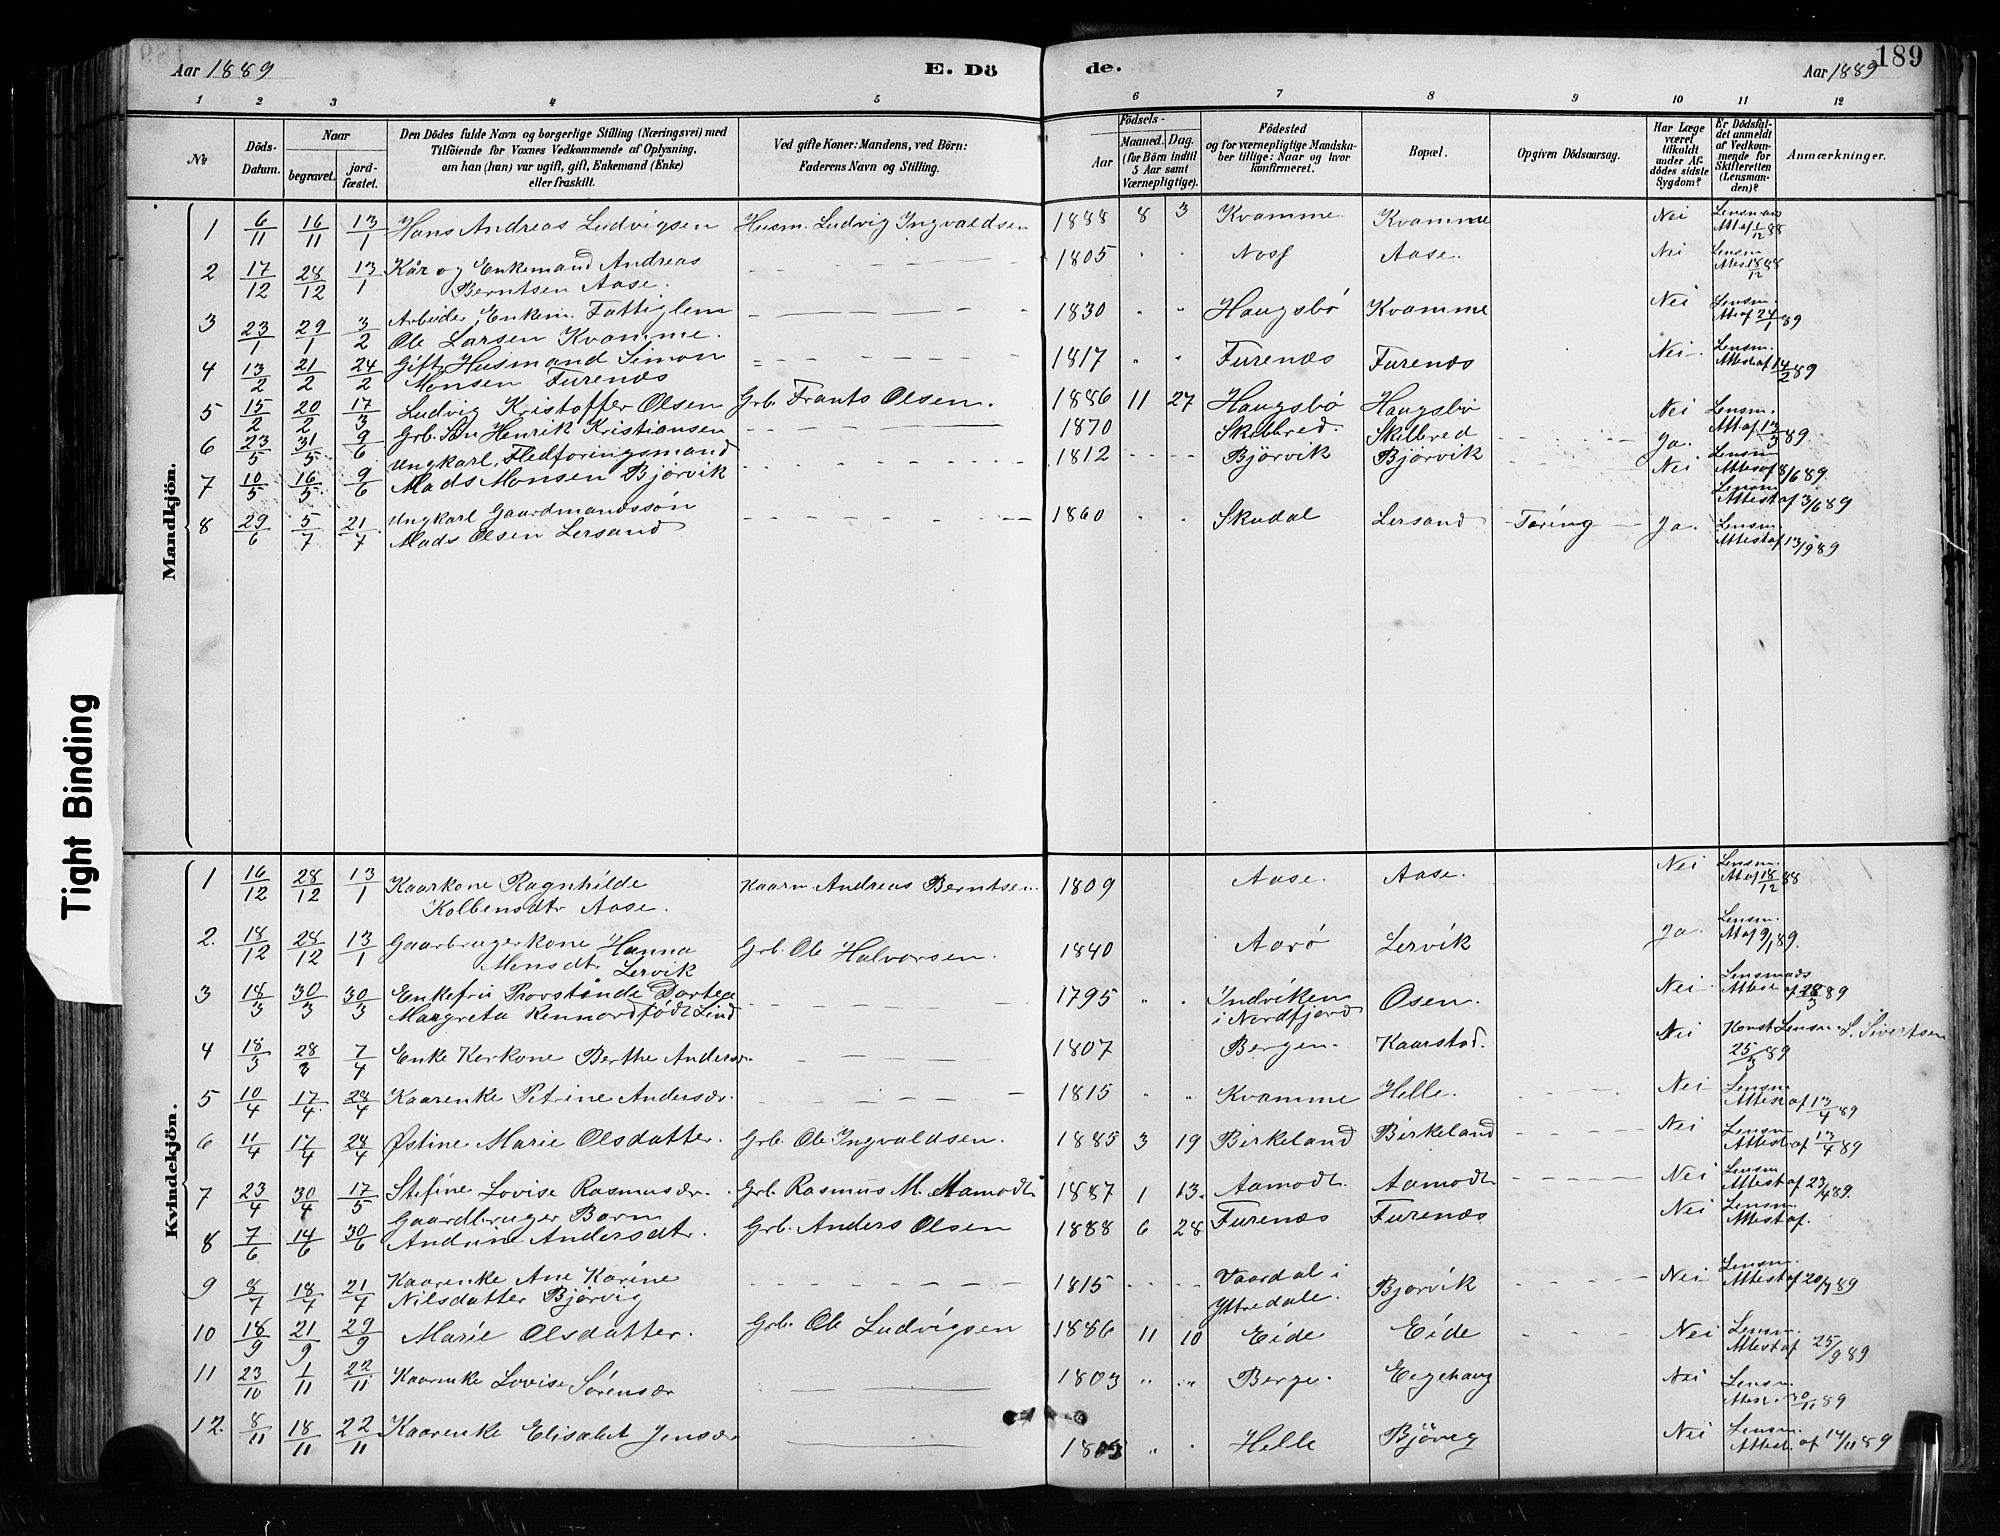 189
Aar 1889 E. Dö de. Aar 1889
1 2 3 4 5 6 7 8 9 10 11 12
No
Döds-Datum.
Naar
begravet. jordfæstet.
Den Dödes fulde Navn og borgerlige Stilling (Næringsvei) med
Tilföiende for Voxnes Vedkommende af Oplysning,
om han (hun) var ugift, gift, Enkemand (Enke)
eller fraskilt.
Ved gifte Koner: Mandens, ved Börn:
Faderens Navn og Stilling.
Födsels-
Aar
Maaned. Dag.
(for Börn indtil
5 Aar samt
Værnepligtige).
Födested
og for værnepligtige Mandska-
ber tillige: Naar og hvor
konfirmeret.
Bopæl.
Opgiven Dödsaarsag.
Har Læge
været
tilkaldt
under Af-
dödes sidste
Sygdom?
Er Dödsfal-
det anmeldt
af Vedkom-
mende for
Skifteretten
(Lensman-
den)?
Anmærkninger.
Mandkjön.
1 6/11 16/11 13/1 Hans Andreas Ludvigsen Husm. Ludvig Ingvaldsen 1888 8 3 Kvamme Kvamme Nei Lensmans Att. af 1/12 88
2 17/12 28/12 13/1 Kår og Enkemand Andreas
Berntsen Aase. 1805 Aase. Nei Lensm. Attest 18/12 88
3 23/1 29/1 3/2 Arbeider, Enkem. Fattiglem
Ole Larsen Kvamme. 1830 Haugsbö Kvamme Nei Lensm. Att af 24/1 89
4 13/2 21/2 24/2 Gift Husmand Simon
Monsen Furenæs 1817 Furenæs Furenæs Nei. Lensm. Attest af 14/2 89
5 15/2 20/2 17/3 Ludvig Kristoffer Olsen Grb. Frants Olsen. 1886 11 27 Haugsbö Haugsbö Nei Lensm. Att af 13/3 89.
6 23/5 31/5 9/6 Grb. Søn Henrik Kristiansen 1870 Skilbred. Skilbred Ja. Lensm Attest af 8/6 89.
7 10/5 16/5 9/6 Ungkarl, Fledföringsmand
Mads Monsen Bjørvik 1812 Bjørvik Bjørvik Nei Lensm Attest af 3/6 89
8 29/6 5/7 21/7 Ungkarl Gaardmandssön
Mads Olsen Lersand 1860 Skudal Lersand Tæring Ja. Lensm. Attest af 13/9 89
Kvindekjön.
1 16/12 28/12 13/1 Kaarkone Ragnhilde
Kolbensdtr Aase. Kaarm. Andreas Berntsen 1809 Aase. Aase. Nei Lensm. Att af 18/12 88
2. 18/12 28/12 13/1 Gaarbrugerkone Hanna
Monsdtr Lervik Grb. Ole Halvorsen. 1840 Aarö Lervik Ja. Lensm. Att af 9/1 89.
3 18/3 30/3 30/3 Enkefru Provstinde Dortea
Margreta Rennord født Lind 1795 Indviken
i Nordfjord Osen. Nei Lensmands Attest af 28/3 89
4 18/3 28/3 7/4 Enke Kerkone Berthe Andersdr. 1807 Bergen. Kaarstad. Nei Konst Lensm. S. Sivertsen 25/3 89
5 10/4 17/4. 28/4 Kaarenke Petrine Andersdr. 1815 Kvamme Helle. Nei Lensm. Attest af 13/4 89
6 11/4 17/4 28/4 Østine Marie Olsdatter. Grb. Ole Ingvaldsen. 1885 3 19 Birkeland Birkeland Nei Lensm. Attest af 13/4 89
7 23/4 30/4 17/5 Stefine Lovise Rasmusdr. Grb. Rasmus M. Aamodt 1887 1 13. Aamodt. Aamodt Nei Lensm Attest af 23/4 89.
8 7/6 14/6 30/6 Gaardbruger Barn
Andrine Andersdtr. Grb. Anders Olsen 1888 6 28 Furenæs Furenæs Nei Lensm. Attest af.
9 8/7 18/7 21/7 Kaarenke Ane Karine
Nilsdatter Bjørvig 1815 Vaardal i
Yttredale. Bjorvik Nei Lensm. Attest af 20/7 89
10 18/9 21/9 29/9 Marie Olsdatter. Grb. Ole Ludvigsen 1886 11 10 Eide Eide Nei Lensm. Attest af 25/9 89
11 23/10 1/11 22/11. Kaarenke Lovise Sørensdr 1803 Berge. Eegehaug Nei Lensm. Attest. 30/11 89
12. 8/11 18/11 22/11 Kaarenke Elisabet Jensdr Helle Nei Lensm. Attest. af 14/11 89
Tight Binding